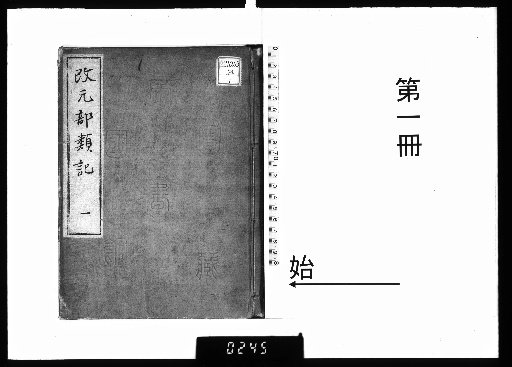 第一冊
始
改元部類記
一
0245